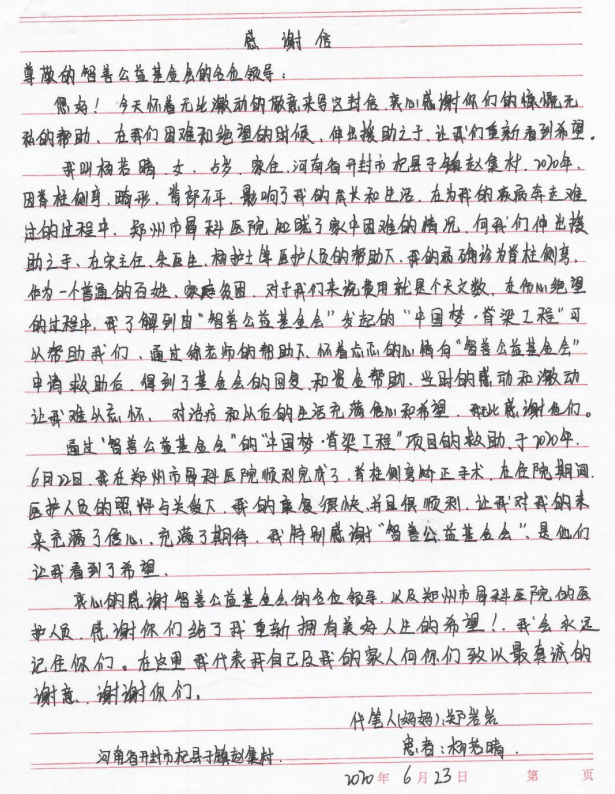 感谢信
尊敬的智善公益基金会的各位领导：
您好！今天怀着无比激动的敬意来写这封信，衷心感谢你们的慷慨无
私的帮助、在我们困难和绝望的时候，伸出援助之手、让我们重新看到希望。
我叫杨若晴、女、岁、家住、河南省开封市杞县于镇赵集村、2020年、
因脊柱侧弯、畸形、背部不平、影响了我的成长和生活、在为我的疾病奔走难
过的过程中、郑州市骨科医院知晓了家中困难的情况，向我们伸出援
助之手、在宋主任、朱医生、杨护士等医护人员的帮助下、我的病确诊为脊柱侧弯，
作为一个普通的百姓、家庭贫困、对于我们来说费用就是个天文数、在伤心绝望
的过程中，我了解到由“智善公益基金会”发起的“中国梦·脊梁工程”可
以帮助我们、通过徐老师的帮助下、怀着忐忑的心情向“智善公益基金会”
申请救助后、得到了基金会的回复、和资金帮助、当时的感动和激动
让我难以忘怀、对治疗和以后的生活充满信心和希望、我在此感谢他们。
通过“智善公益基金会”的“中国梦·脊梁工程”项目的救助、于2020年、
6月22日、我在郑州市骨科医院顺利完成了、脊柱侧弯矫正手术、在住院期间、
医护人员的照料与关爱下、我的康复很快、并且很顺利、让我对我的未
来充满了信心、充满了期待、我特别感谢“智善公益基金会”、是他们
让我看到了希望。
衷心的感谢智善公益基金会的各位领导、以及郑州市骨科医院的医
护人员、感谢你们给了我重新拥有美好人生的希望！、我会永远
记住你们。在这里我代表我自己及我的家人向你们致以最真诚的
谢意、谢谢你们。
代笔人(妈妈)：郑岩岩
患者：杨若晴
河南省开封市杞县于镇赵集村、
2020年6月23日 第 页